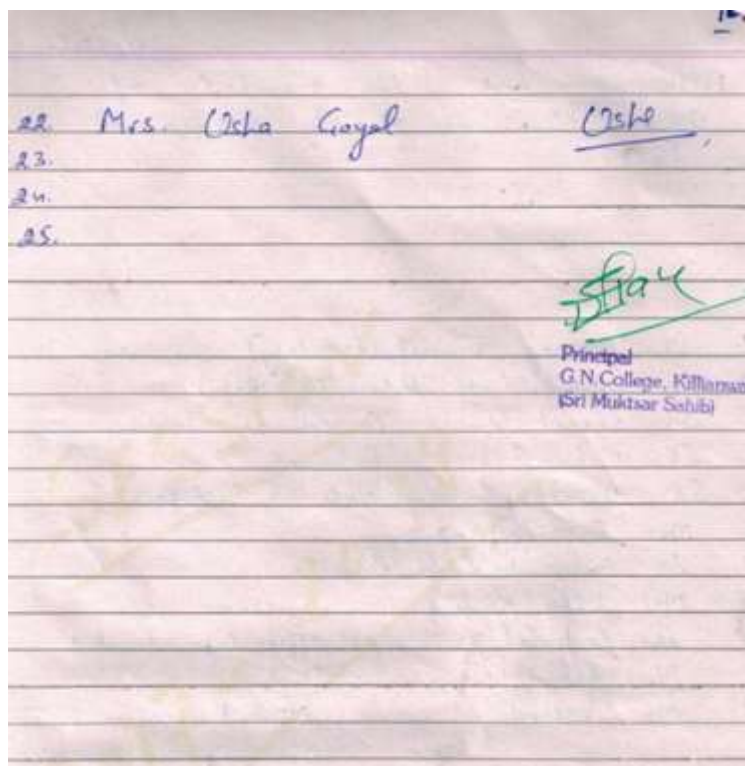 22. Mrs. Usha Goyal Usha
23.
24.
25.
Principal
G.N. College, Killianwa
(Sri Muktsar Sahib)